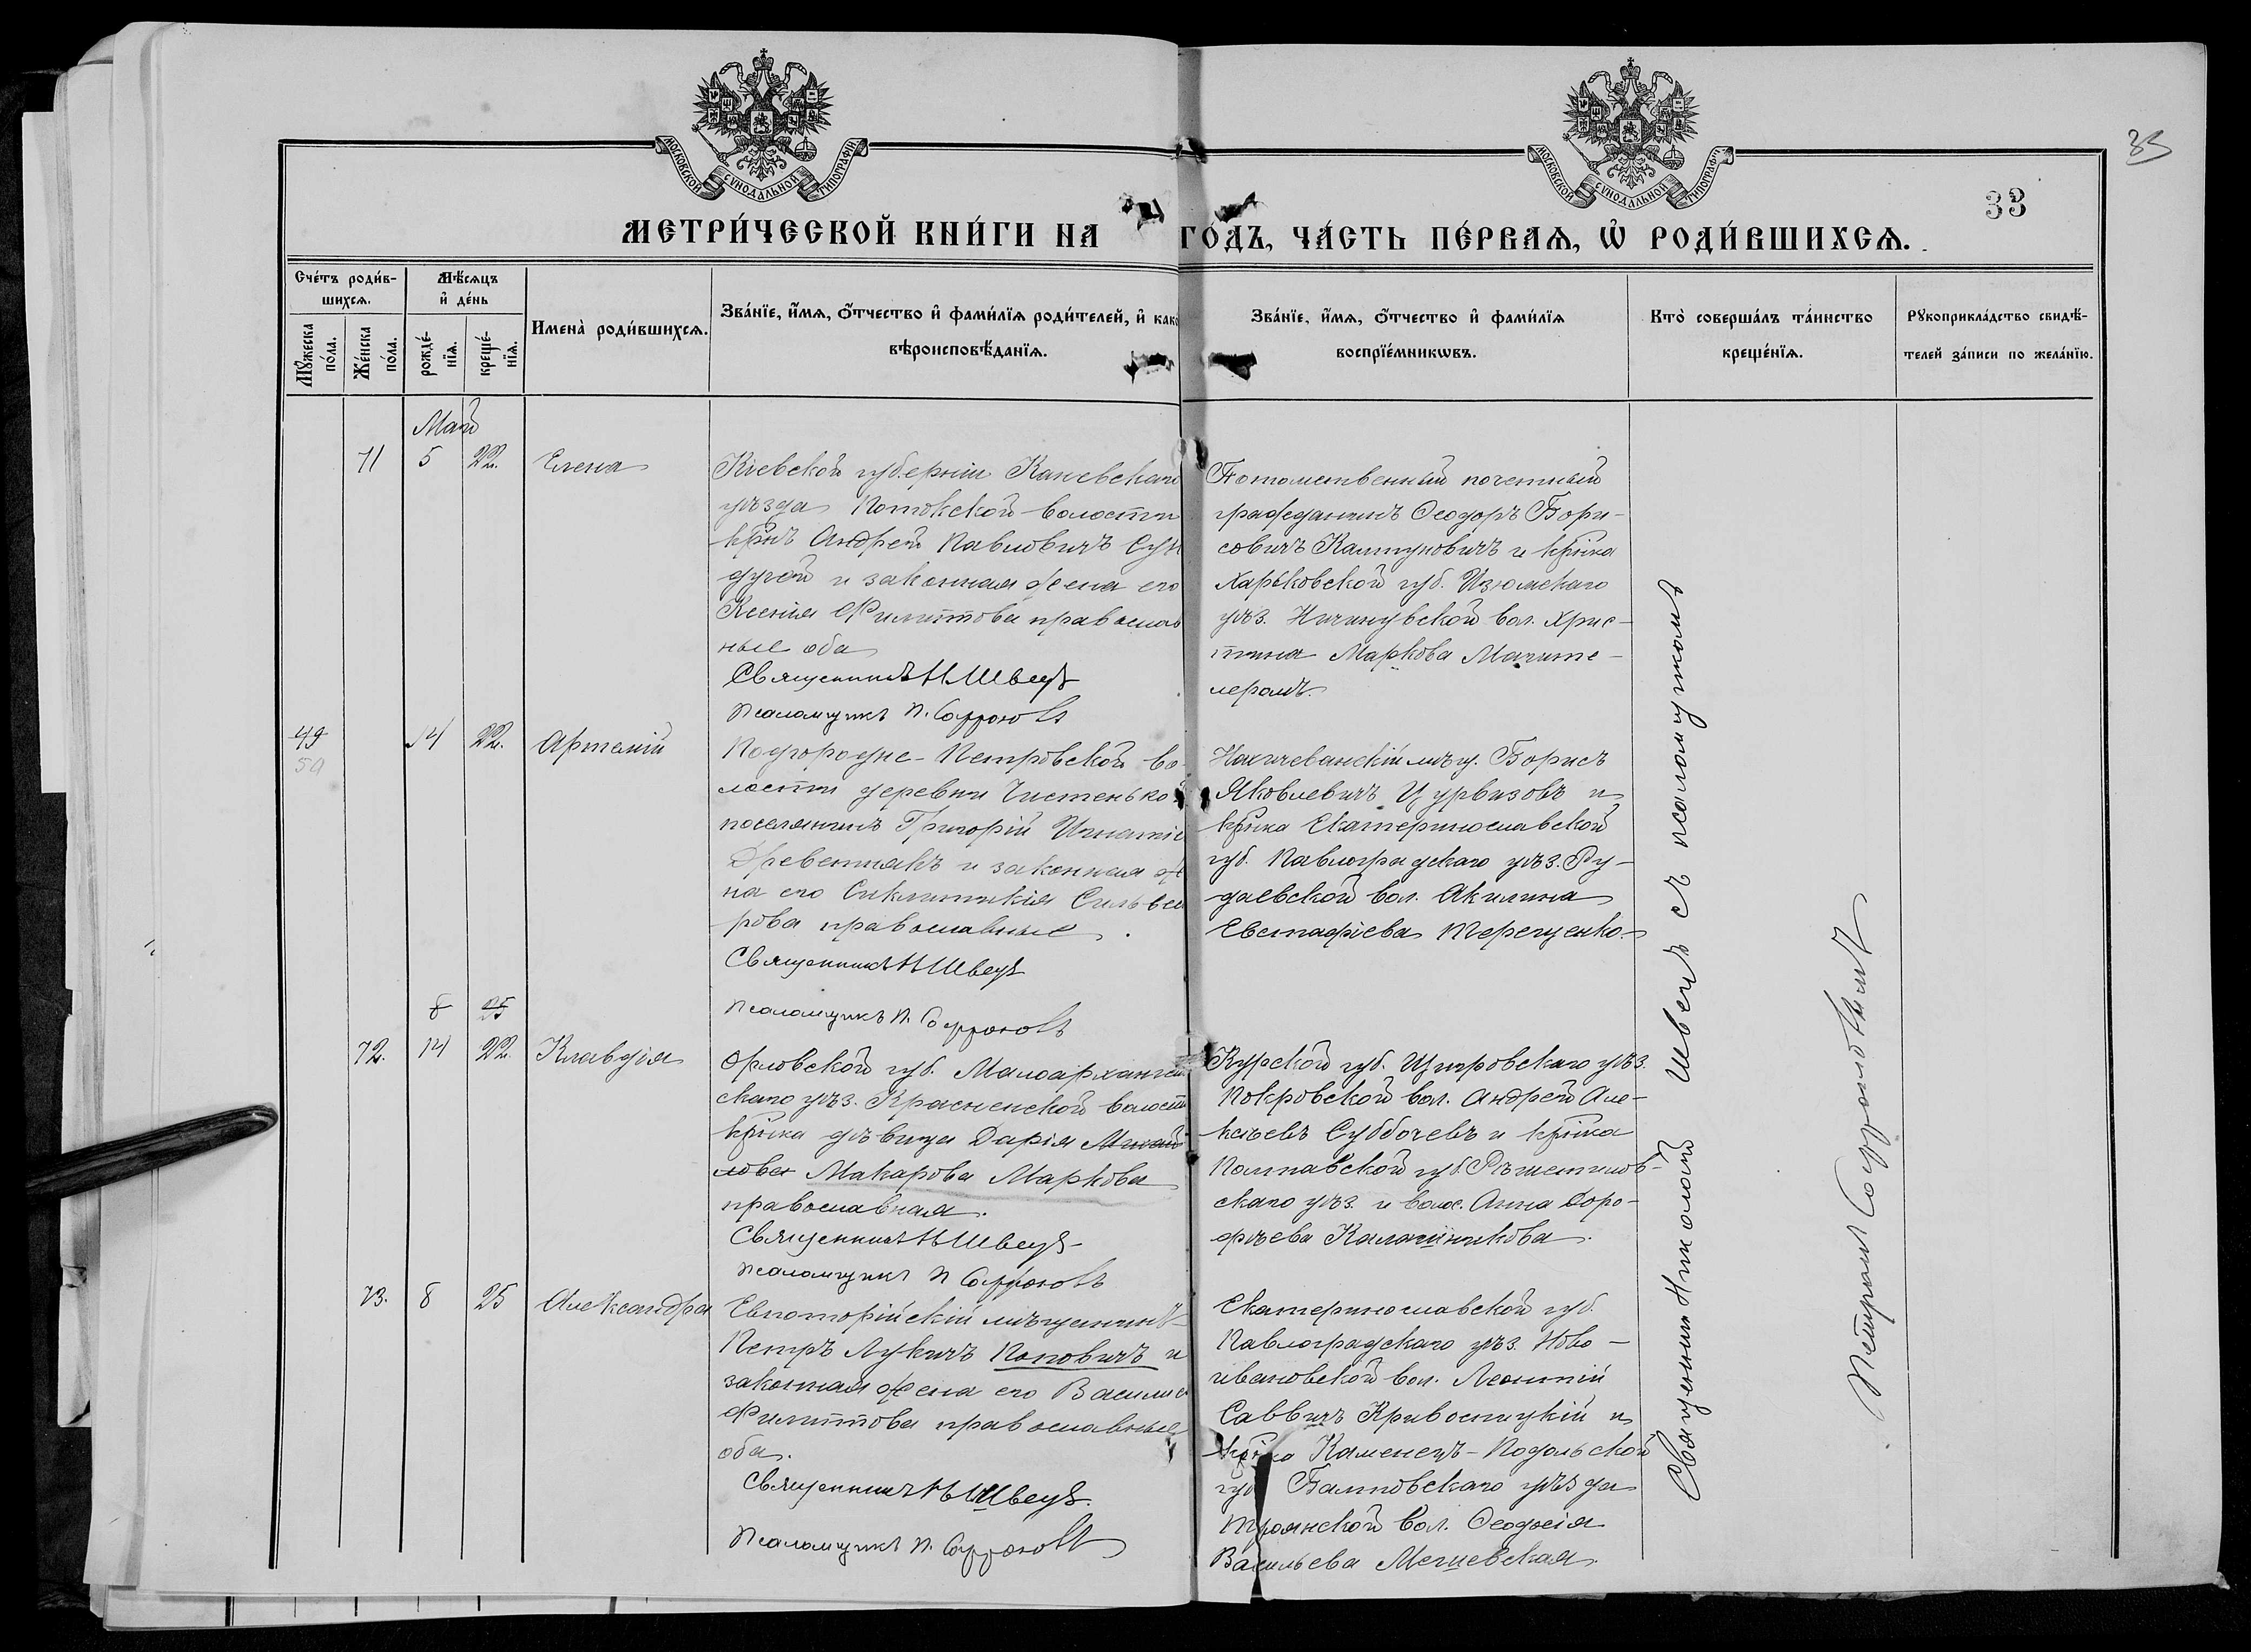 35
33
МОСКОВСКОЙ СѴНОДАЛЬНОЙ ТИПОГРАФІИ
МОСКОВСКОЙ СѴНОДАЛЬНОЙ ТИПОГРАФІИ
МЕТРИ́ЧЕСКОЙ КНИ́ГИ НА
ГО́ДЪ, ЧА́СТЬ ПЕ́РВАѦ, Ѡ҆ РОДИ́ВШИХСѦ.
Сче́тъ роди́в-
шихсѧ.
Мѣ́сѧцъ
и҆ де́нь
Мꙋ́жеска
по́ла.
Же́нска
по́ла.
рожде́-
нїѧ.
креще́-
нїѧ.
Имена̀ роди́вшихсѧ.
Зва́нїе, и҆́мѧ, ѻ҆́тчество и҆ фами́лїѧ роди́телей, и҆ како
вѣроисповѣ́данїѧ.
Зва́нїе, и҆́мѧ, ѻ҆́тчество и҆ фами́лїѧ
воспрїе́мникωвъ.
Кто̀ соверша́лъ та́инство
креще́нїѧ.
Рꙋкоприкла́дство свидѣ́-
телей за́писи по жела́нїю.
Май
71 5 22. Елена
Кіевской губерніи Каневскаго
уѣзда Потокской волости
кр̃нъ Андрей Павловичъ Сун
дугой и законная жена его
Ксенія Филиппова православ
ные оба
Священникъ Н Швецъ
Псаломщикъ П. Софроновъ
Потомственный почетный
гражданинъ Ѳеодоръ Бори-
совичъ и кр̃нка
Харьковской губ. Изюмскаго
уѣз. вол. Хрис-
тина Маркова
49
50
14 22. Артемій
Подгородне-Петровской во-
лости деревни Чистенькой
поселянинъ Григорій Игнатіе
Древетнякъ и законная же
на его Синклитикія Сильве
рова православные.
Священникъ Н Швецъ
Псаломщикъ П. Софроновъ
Нахичеванскій мѣщ. Борисъ
Яковлевичъ Цурвизовъ и
кр̃нка Екатеринославской
губ. Павлоградскаго уѣз. Ру-
даевской вол. Акилина
Евстафіева Терещенко.
8 25
72. 14 22. Клавдія
Орловской губ. Малоархангел
скаго уѣз. Красненской волости
кр̃нка дѣвица Дарія Михай
лова Макарова Маркова
православная.
Священникъ Н Швецъ
Псаломщикъ П Софроновъ
Курской губ. Щигровскаго уѣз.
Покровской вол. Андрей Але-
ксѣевъ Субботевъ и кр̃нка
Полтавской губ. Рѣшетилов-
скаго уѣз. и волос. Анна Доро-
фѣева Калашникова.
73. 8 25 Александра
Евпаторійскій мѣщанинъ
Петръ Лукичъ Поповичъ и
законная жена его Василис
Филиппова православные
оба.
Священникъ Н Швецъ.
Псаломщикъ П. Софроновъ
Екатеринославской губ.
Павлоградскаго уѣз. Ново-
ивановской вол. Леонтій
Саввичъ Кривоспицкій и
кр̃нка Каменецъ-Подольской
губ Балтовскаго уѣзда
Троянской вол. Ѳеодосія
Васильева Мегшевская.
Священникъ Николай Швецъ съ псаломщикомъ
Петромъ Софроновымъ